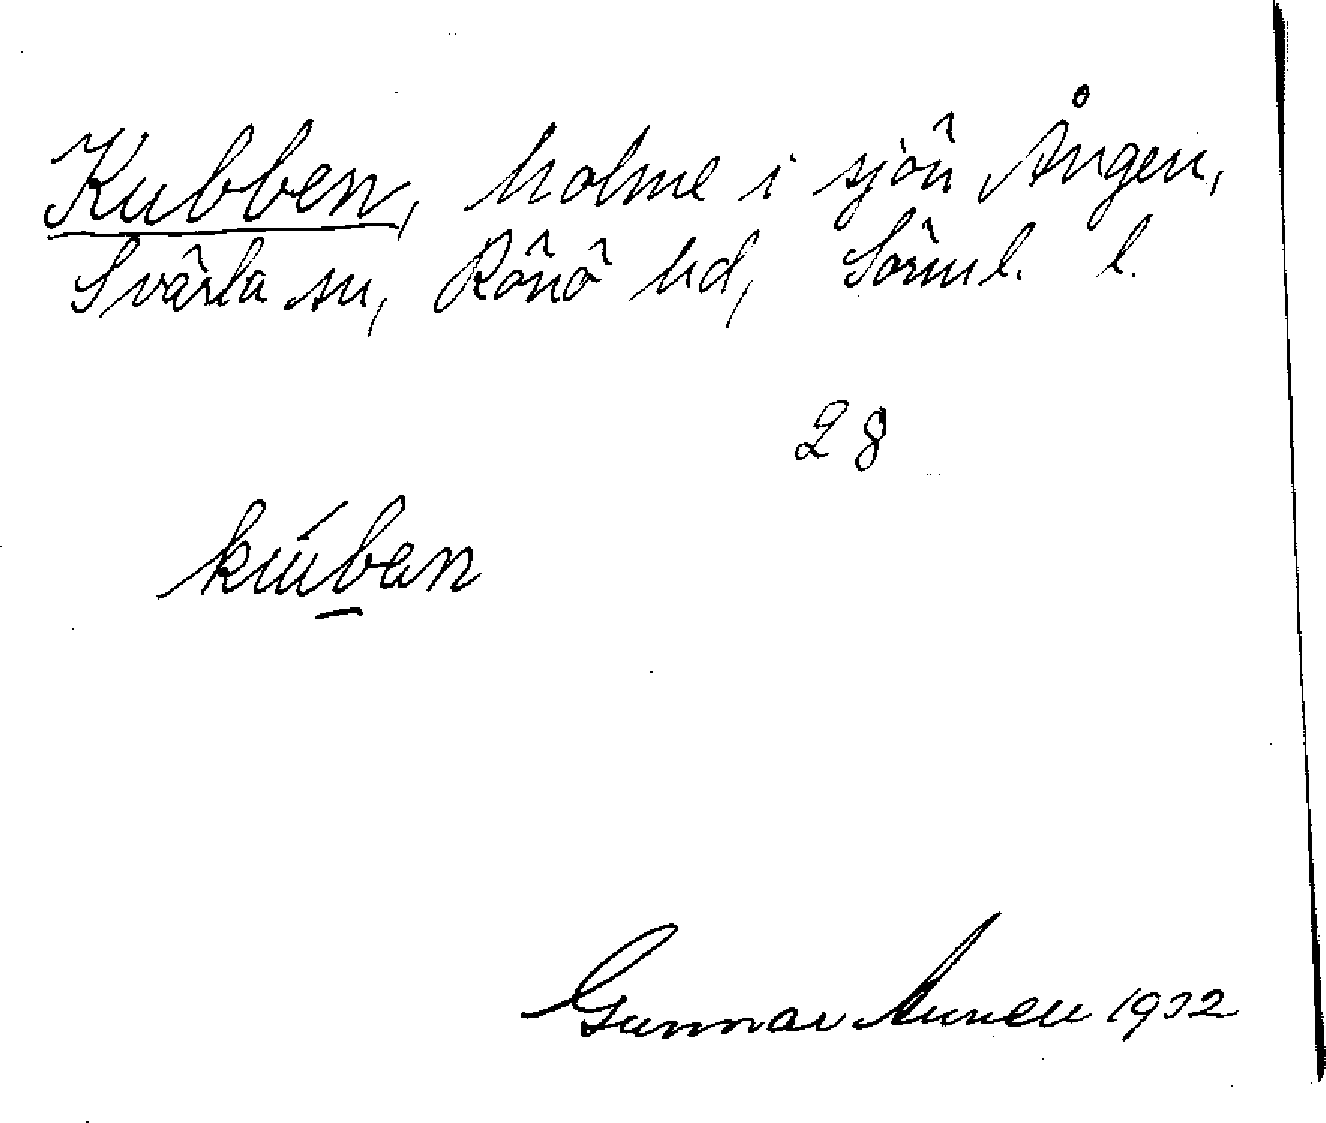 Kubben, holme i sjön Ången,
Svärta sn, Rönö hd, Sörml. l.
28
kúban
Gunnar Annell 1932